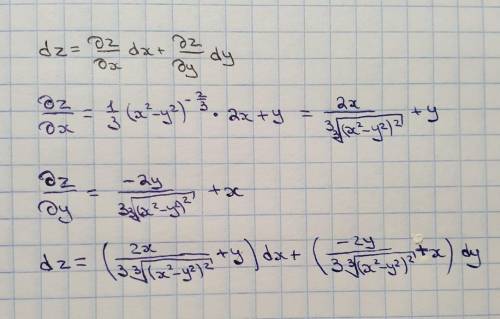 dz = ∂z/∂x dx + ∂z/∂y dy
∂z/∂x = 1/3 (x²-y²)^(-2/3) · 2x + y = 2x/(3∛(x²-y²)²) + y
∂z/∂y = -2y/(3∛(x²-y²)²) + x
dz = (2x/(3∛(x²-y²)²) + y) dx + (-2y/(3∛(x²-y²)²) + x) dy